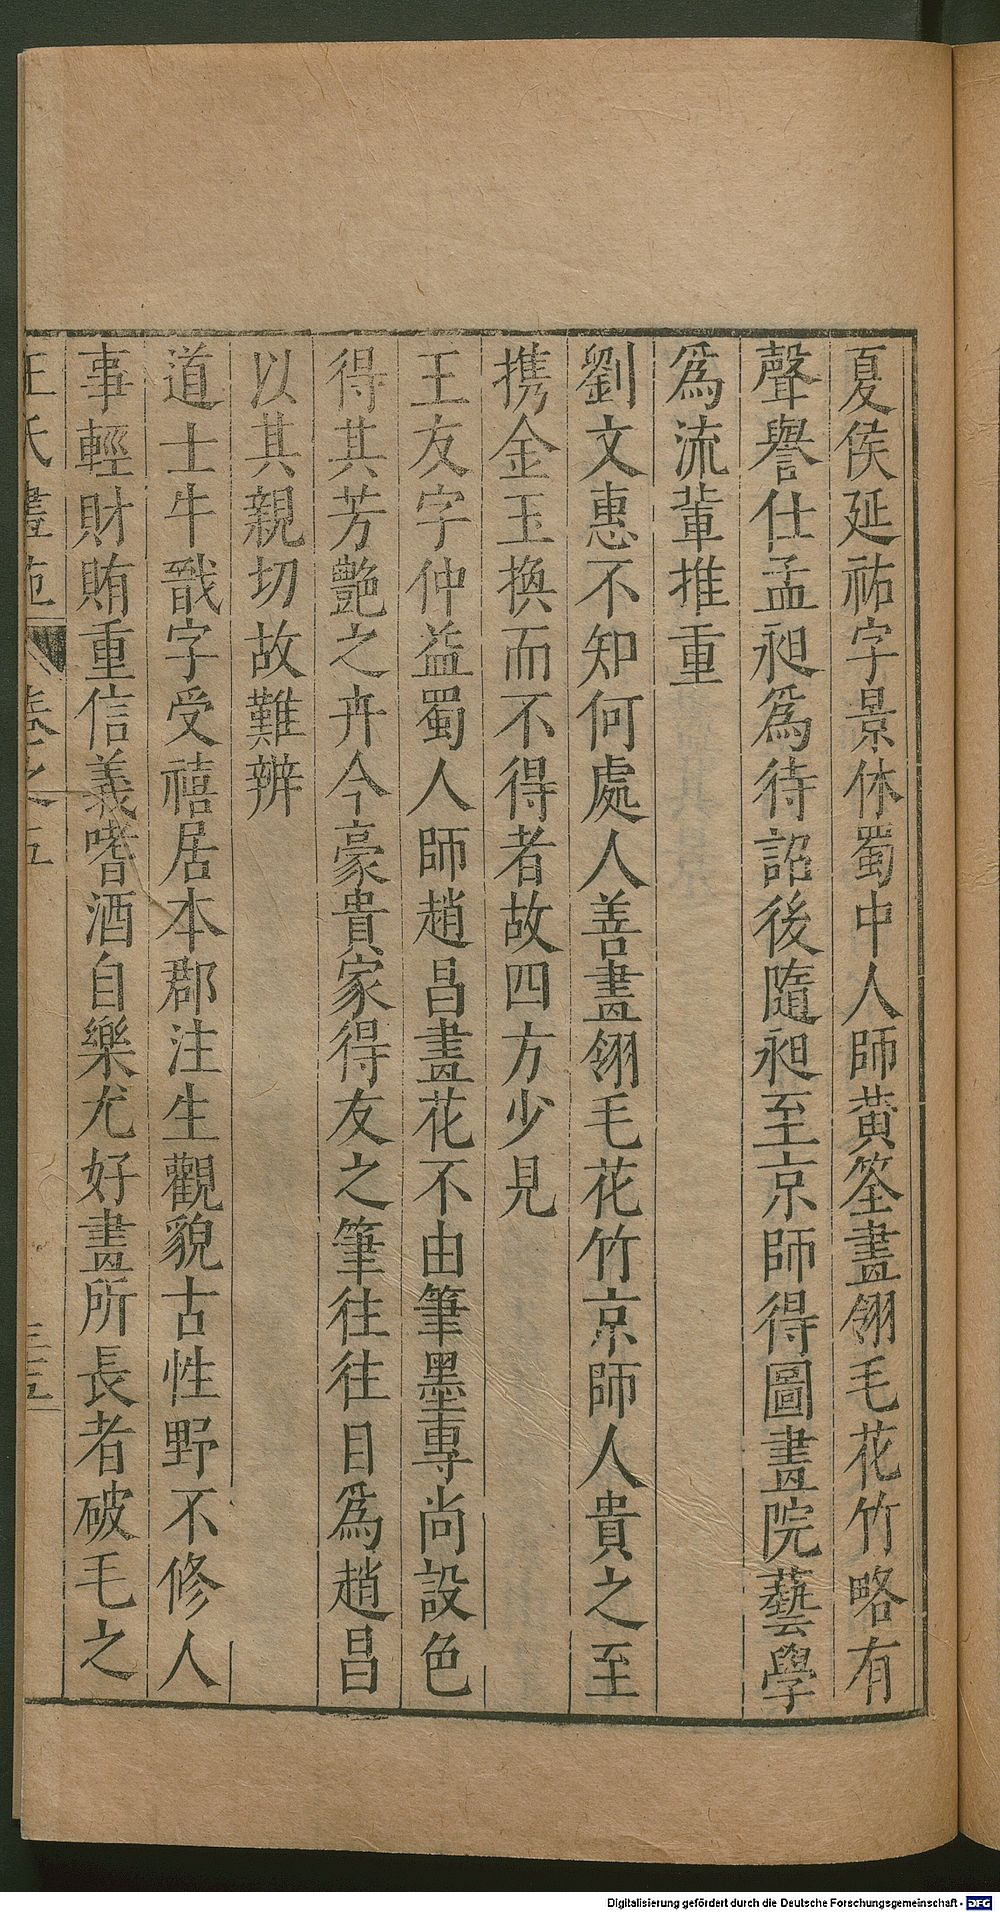 夏侯延祐字景休蜀中人師黃筌畫翎毛花竹略有
聲譽仕孟昶爲待詔後隨昶至京師得圖畫院藝學
爲流輩推重
劉文惠不知何處人善畫翎毛花竹京師人貴之至
携金玉換而不得者故四方少見
王友字仲益蜀人師趙昌畫花不由筆墨專尚設色
得其芳艷之卉今豪貴家得友之筆往往目爲趙昌
以其親切故難辨
道士牛戩字受禧居本郡注生觀貌古性野不修人
事輕財賄重信義嗜酒自樂尤好畫所長者破毛之
王氏畫苑 卷之五
Digitalisierung gefördert durch die Deutsche Forschungsgemeinschaft - DFG